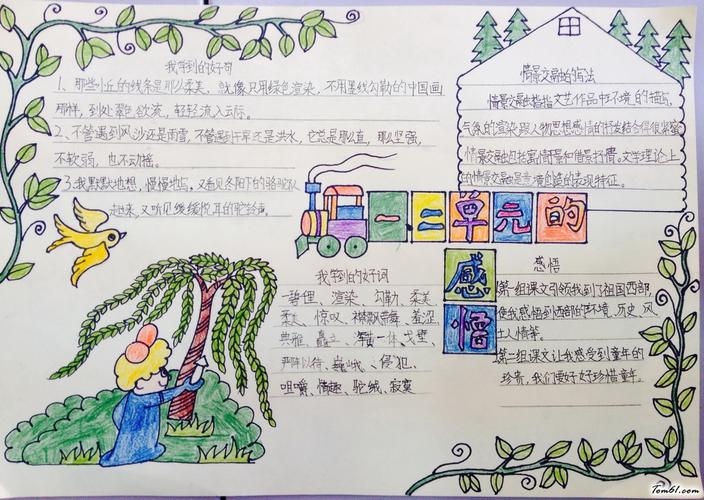 我学到的好句
1、那些小丘的线条是那么柔美，就像只用绿色渲染，不用墨线勾勒的中国画
那样，到处翠色欲流，轻轻流入云际。
2、不管遇到风沙还是雨雪，不管遇到干旱还是洪水，它总是那么直，那么坚强，
不软弱，也不动摇。
3.我默默地想，慢慢地写，又看见冬阳下的骆驼队
走过来，又听见缓缓悦耳的驼铃声。
情景交融的写法
情景交融指文艺作品中环境的描写、
气氛的渲染跟人物思想感情的抒发结合得很紧密。
情景交融包括寓情于景和借景抒情。文学理论上
的情景交融是意境创造的表现特征。
一.二单元的
感悟
我学到的好词
一碧 渲染、勾勒、柔美
惊叹、襟飘带舞、羞涩
典雅、矗立、浑黄一体、戈壁、
严阵以待、巍峨、侵犯、
咀嚼、情趣、驼绒、寂寞
感悟
第一组课文引领我到了祖国西部
使我感悟到西部的环境、历史、风
土人情等。
第二组课文让我感受到童年的
珍贵，我们要好好珍惜童年。
Tom61.com